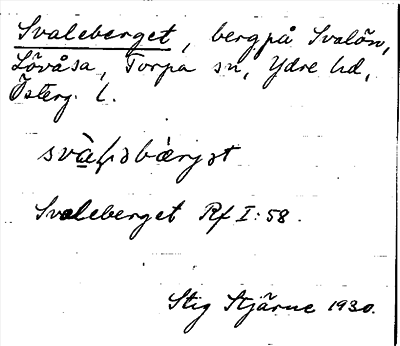 Svaleberget, berg på Svalön,
Lövåsa, Torpa sn, Ydre hd,
Österg. l.
Svaleberget Rf I:58.
Stig Stjärne 1930.